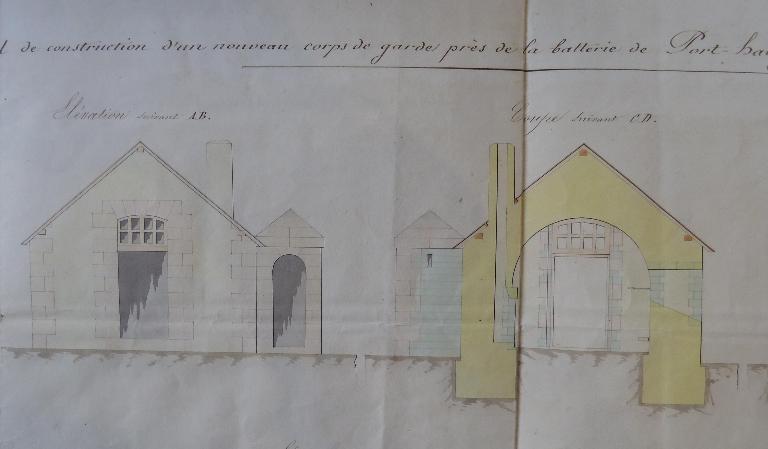 de construction d'un nouveau corps de garde près de la batterie de Port-ha
Élévation suivant A.B.
Coupe suivant C.D.